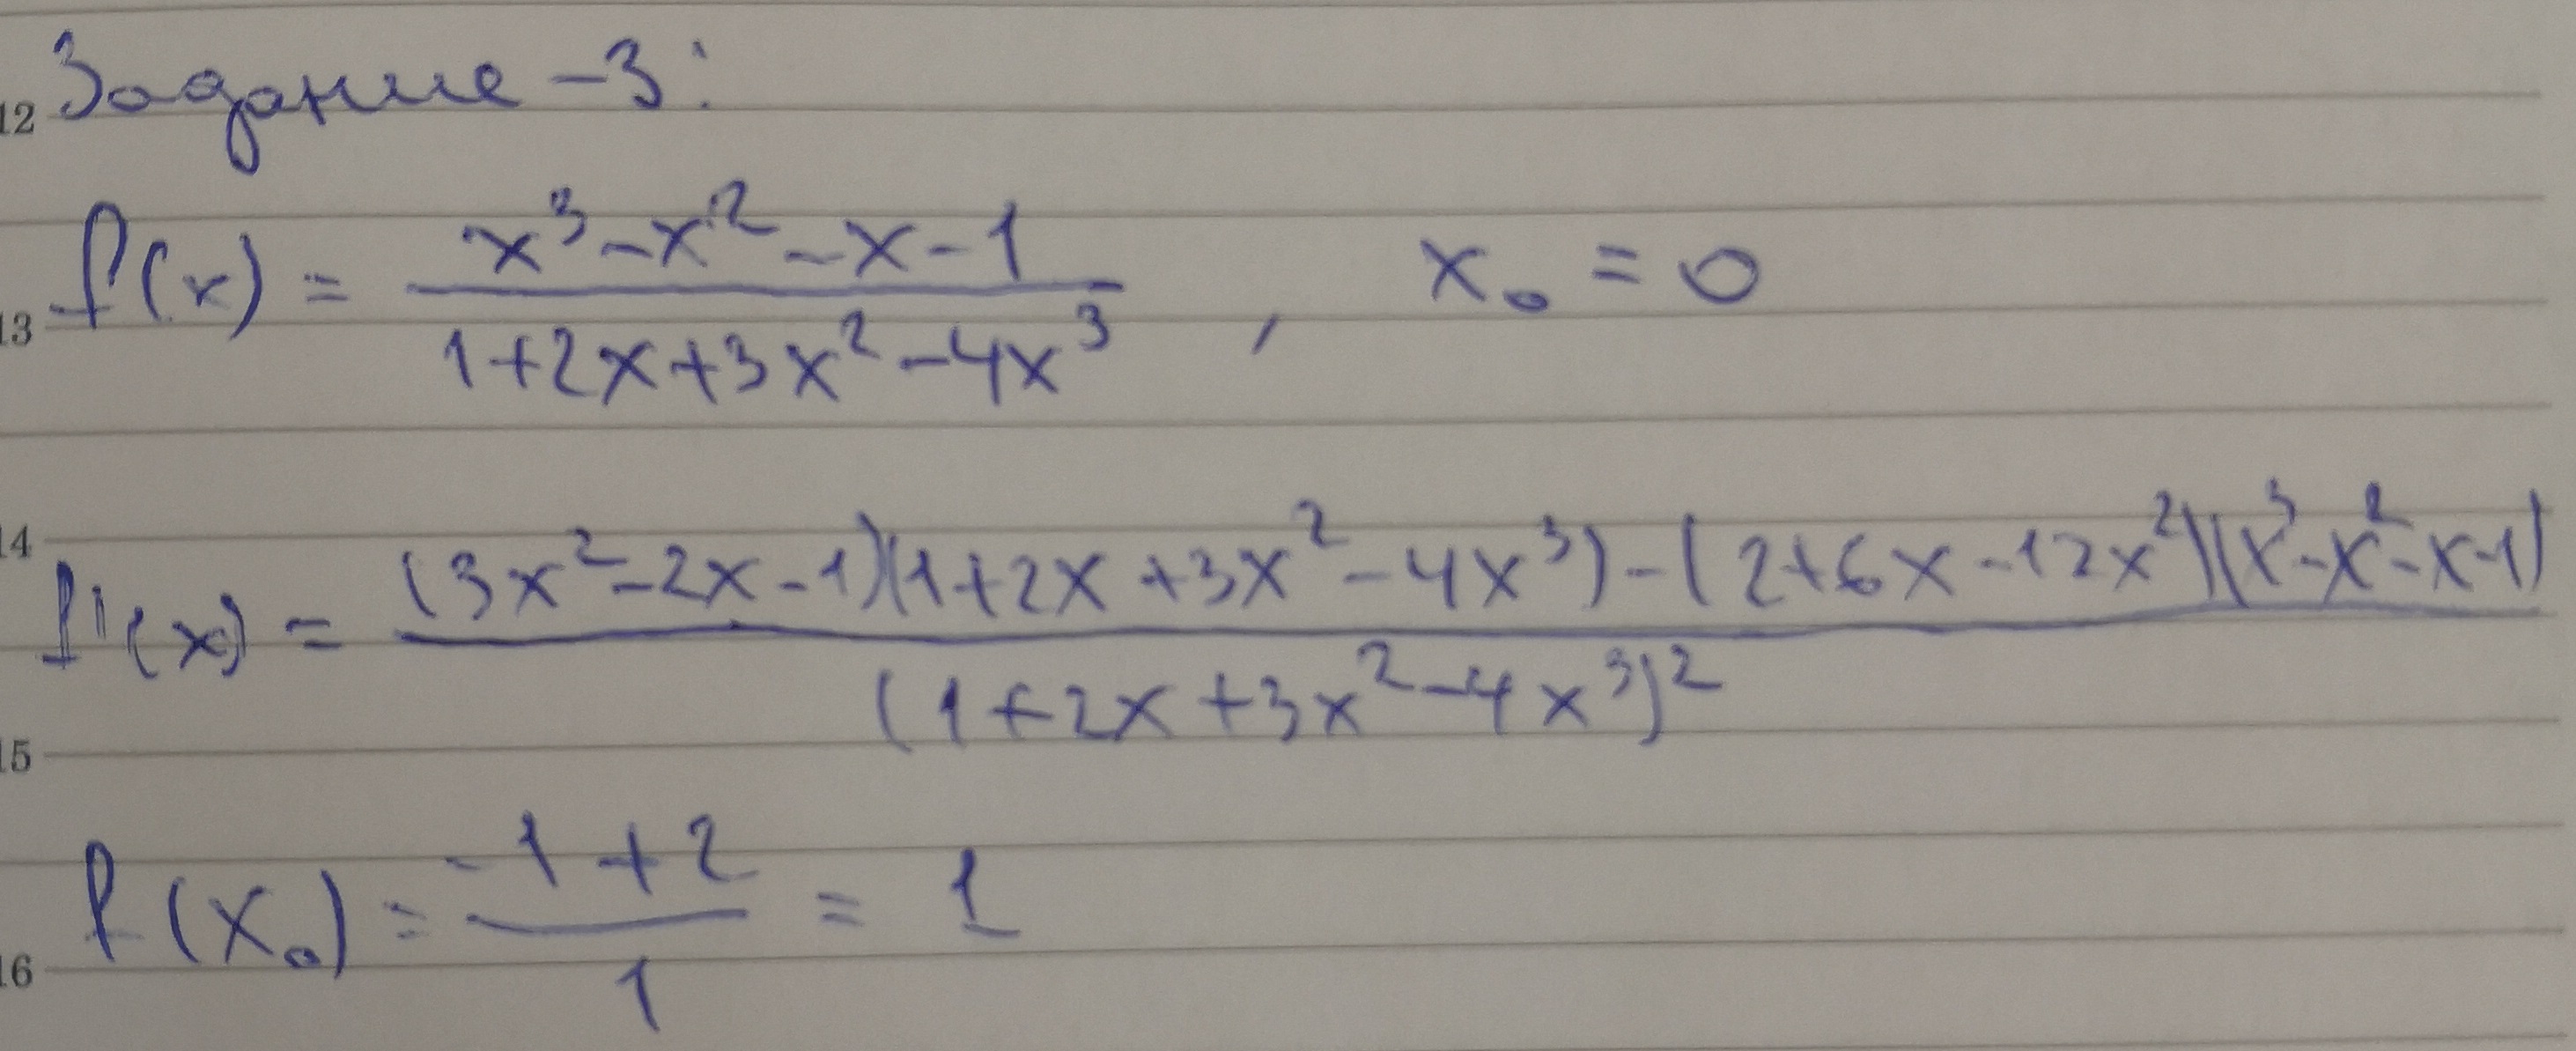 12 Задание -3:
13 f(x) = (x³-x²-x-1)/(1+2x+3x²-4x³) , x₀ = 0
14 f'(x) = ((3x²-2x-1)(1+2x+3x²-4x³)-(2+6x-12x²)(x³-x²-x-1))/((1+2x+3x²-4x³)²)
15
16 f(x₀) = (-1+2)/1 = 1